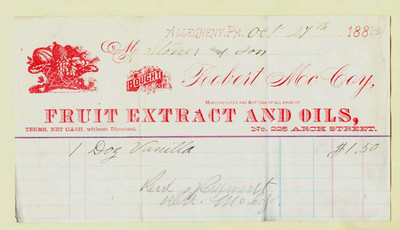 ALLEGHENY, PA. Oct 27th 1883
M Stoner and Son
BOUGHT OF Robert McCoy,
MANUFACTURER AND BOTTLER OF ALL KINDS OF
FRUIT EXTRACT AND OILS,
TERMS, NET CASH, without Discount. No. 225 ARCH STREET.
1 Doz Vanilla $1.50
Recd Payment
McCoy